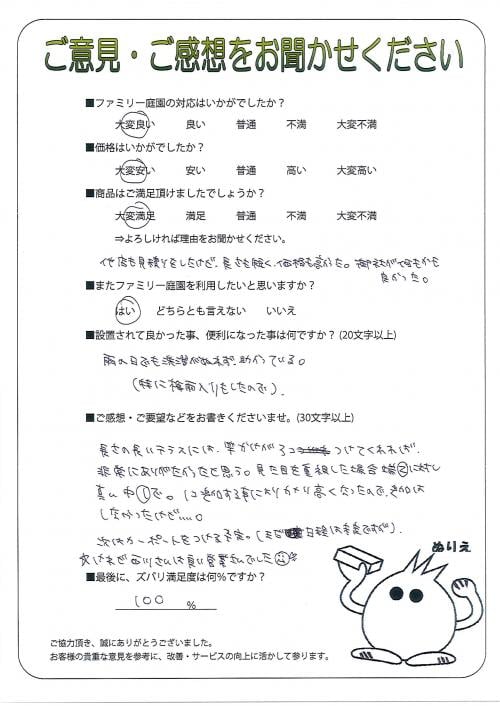 ご意見・ご感想をお聞かせください
■ファミリー庭園の対応はいかがでしたか？
大変良い 良い 普通 不満 大変不満
■価格はいかがでしたか？
大変安い 安い 普通 高い 大変高い
■商品はご満足頂けましたでしょうか？
大変満足 満足 普通 不満 大変不満
⇒よろしければ理由をお聞かせください。
他店も見積りをしたけど、長さも短く、価格も高かった。御社が何もかも
良かった。
■またファミリー庭園を利用したいと思いますか？
はい どちらとも言えない いいえ
■設置されて良かった事、便利になった事は何ですか？(20文字以上)
雨の日でも洗濯がぬれず、助かっている。
（特に梅雨入りをしたので）.
■ご感想・ご要望などをお書きくださいませ。(30文字以上)
長さの長いテラスには、竿かけが3コ つけてくれれば
非常にありがたかったと思う。見た目を重視した場合 端②に対し
真ん中①で。1コ追加する事によりかなり高くなったので、追加は
しなかったけど….
次はカーポートをつける予定。(まだ日程は未定ですが).
さんは良い営業さんでした
■最後に、ズバリ満足度は何％ですか？
100 ％
ぬりえ
ご協力頂き、誠にありがとうございました。
お客様の貴重な意見を参考に、改善・サービスの向上に活かして参ります。